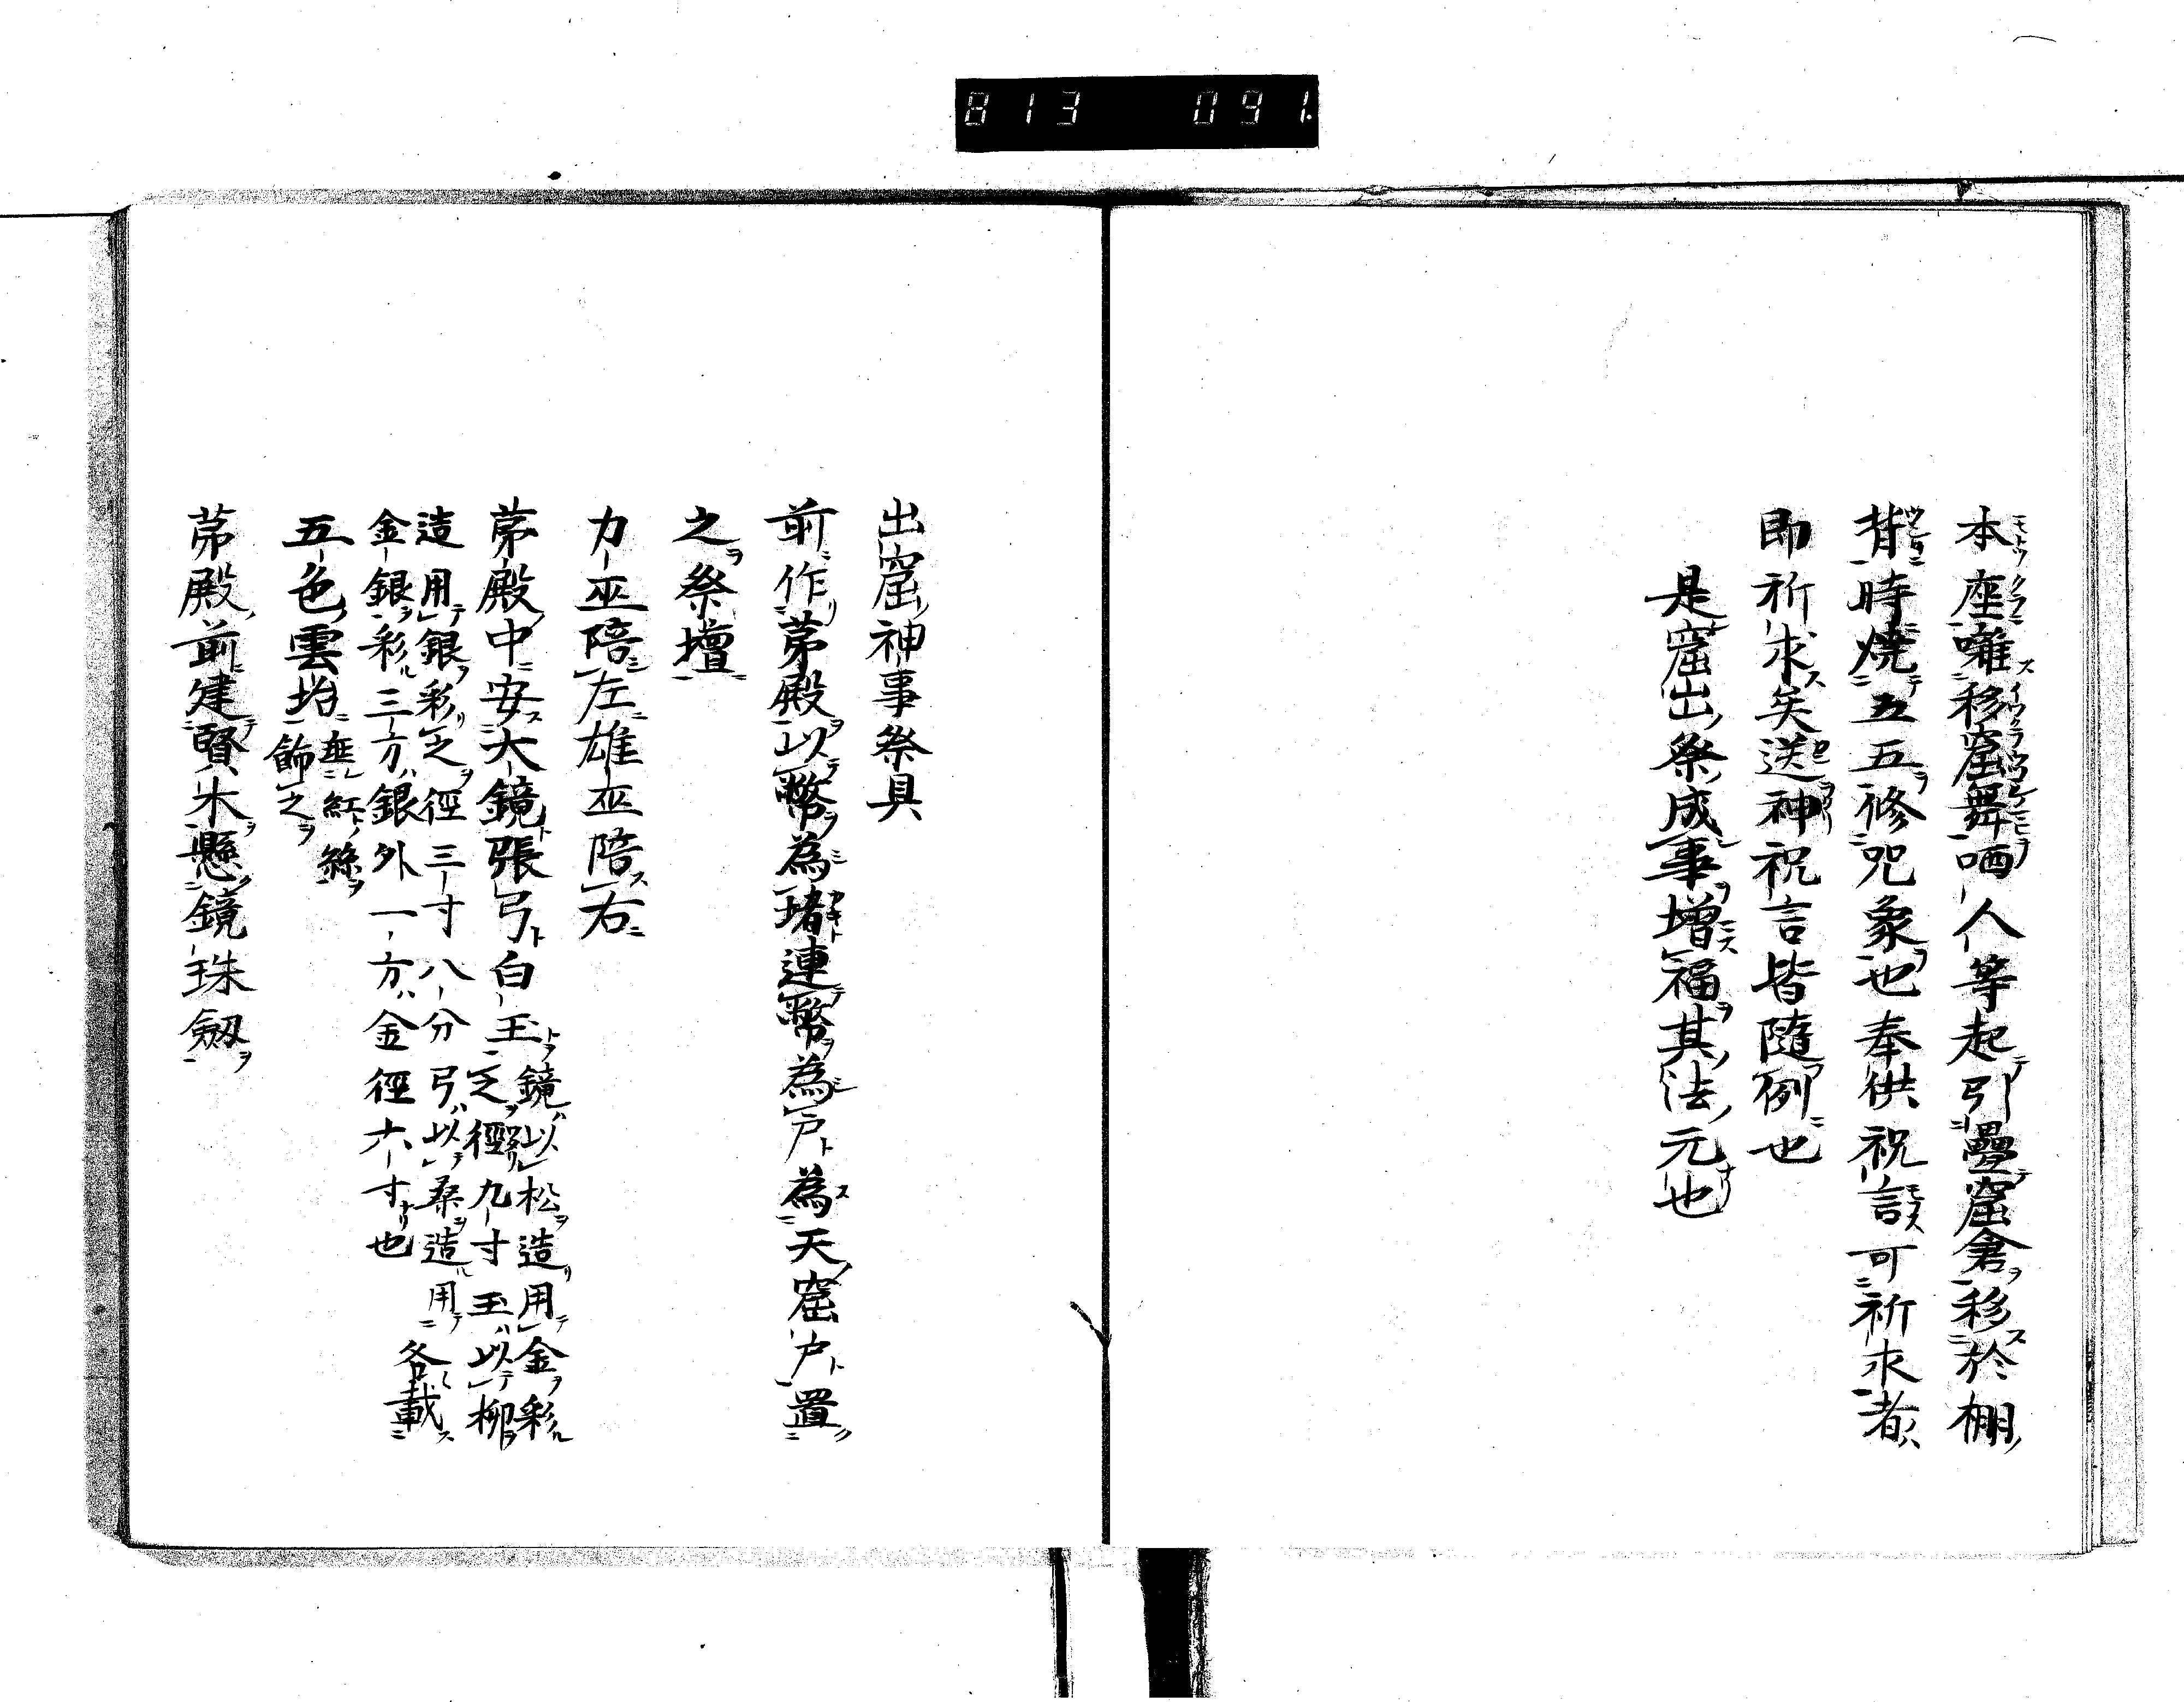 813 091.
本座囃移窟舞哂人等起引疊窟倉移於棚
背時燒五五修咒象也奉供祝言可祈求者
即祈求矣送神祝言皆隨例也
是窟出祭成事增福其法元也
出窟神事祭具
前作茅殿以幣為堵連幣為戸為天窟戸置
之祭壇
力巫陪左雄巫陪右
茅殿中安大鏡張弓白玉
鏡以松造用金彩
之徑九寸玉以柳
造用銀彩之徑三寸八分弓以桑造用
金銀彩三方銀外一方金徑六寸也
各載
五色雲均
垂紅絲
飾之
茅殿前建賢木懸鏡珠劔